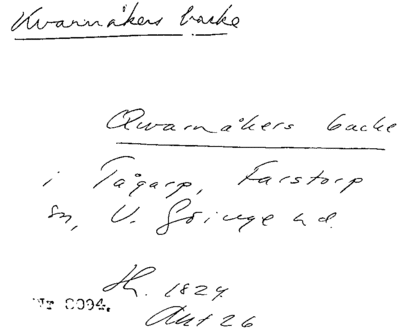 Kvarnåkers backe
Qvarnåkers backe
i Tågarp, Farstorp
sn, V. Göinge hd.
Sk. 1824.
Akt 26